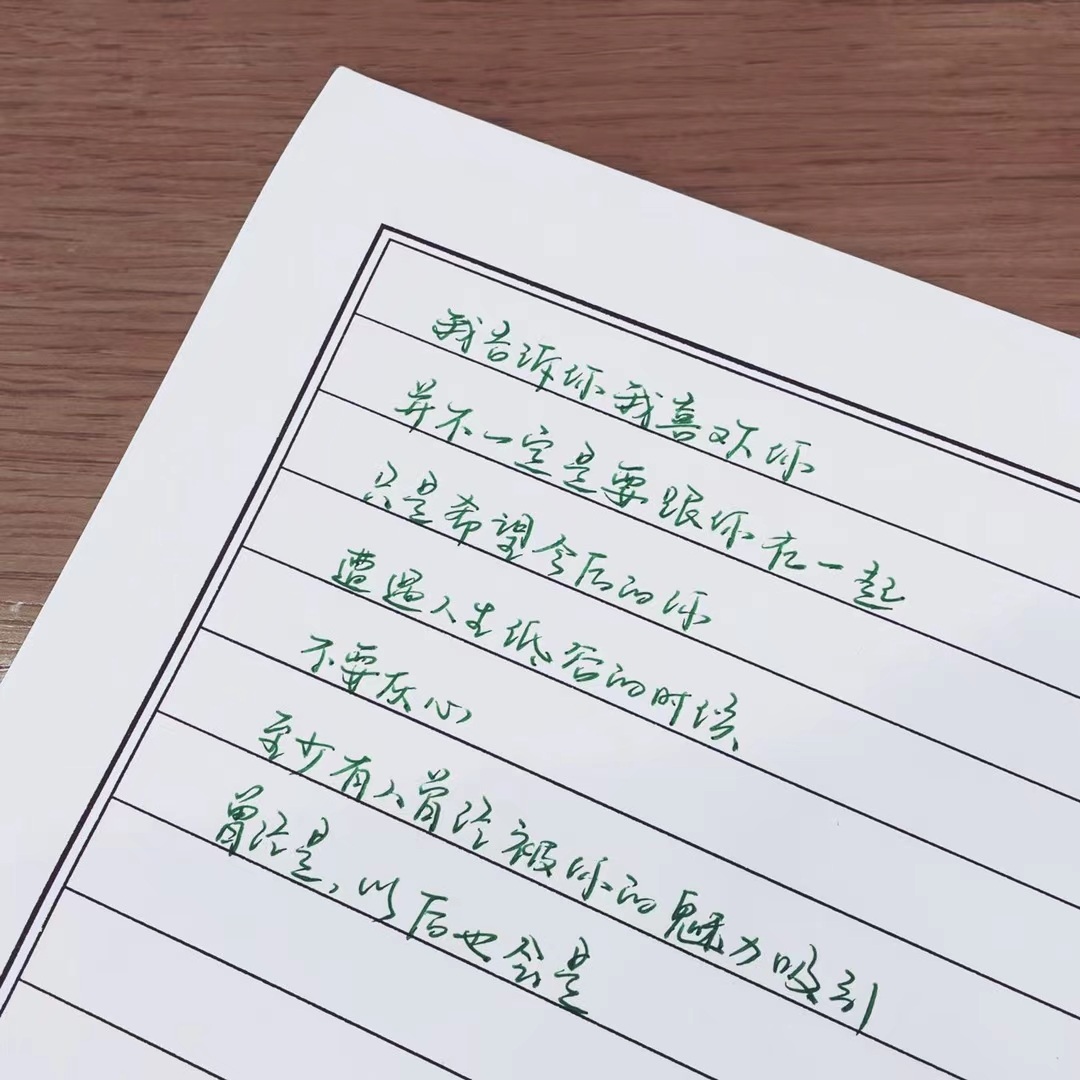 我告诉你我喜欢你
并不一定是要跟你在一起
只是希望今后的你
遭遇人生低谷的时候
不要灰心
至少有人曾经被你的魅力吸引
曾经是，以后也会是